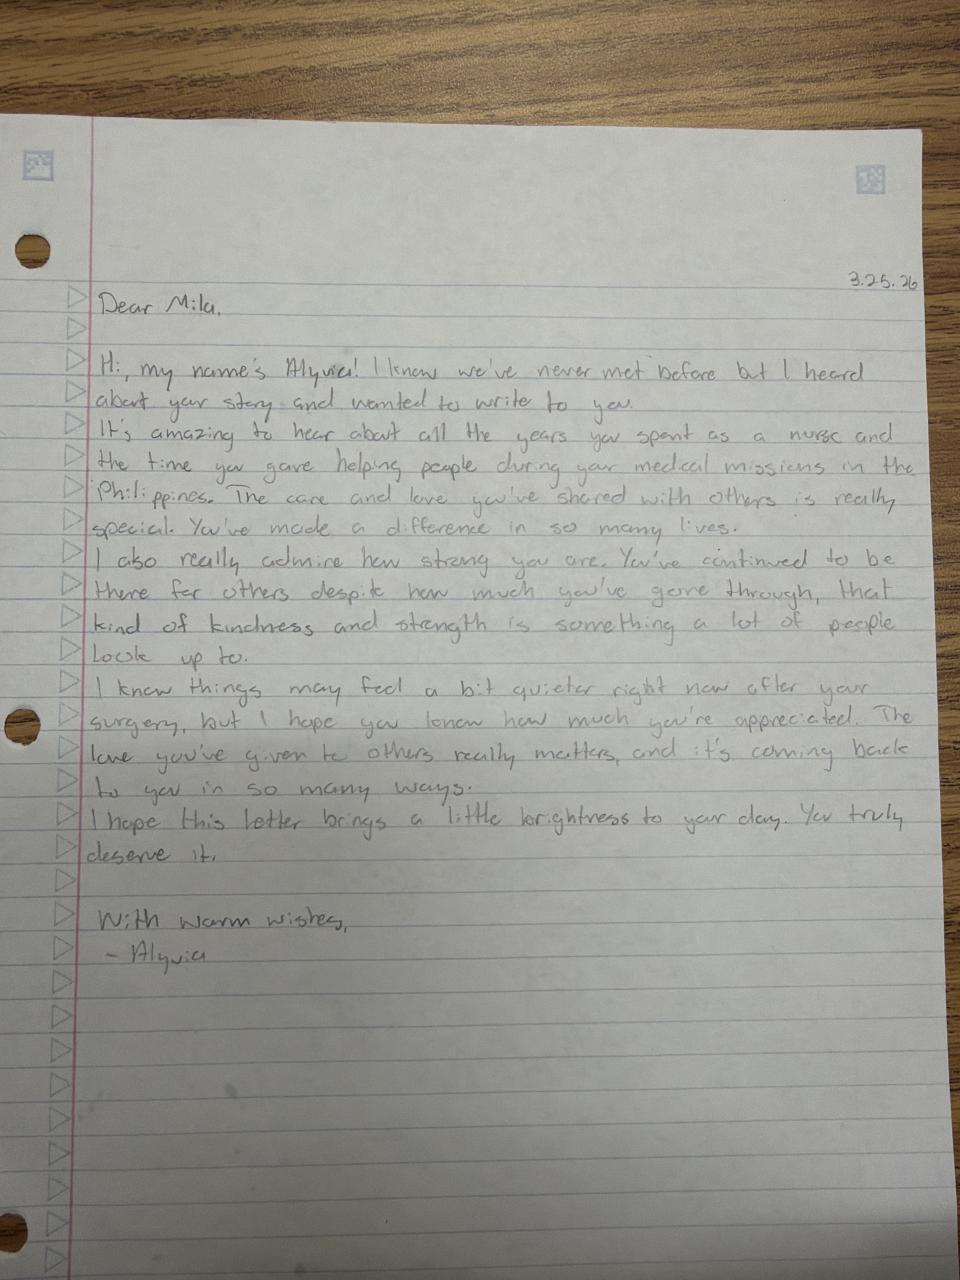 3.25.26
Dear Mila,
Hi, my name's Alyvia! I know we've never met before but I heard
about your story and wanted to write to you.
It's amazing to hear about all the years you spent as a nurse and
the time you gave helping people during your medical missions in the
Philippines. The care and love you've shared with others is really
special. You've made a difference in so many lives.
I also really admire how strong you are. You've continued to be
there for others despite how much you've gone through, that
kind of kindness and strength is something a lot of people
look up to.
I know things may feel a bit quieter right now after your
surgery, but I hope you know how much you're appreciated. The
love you've given to others really matters, and it's coming back
to you in so many ways.
I hope this letter brings a little brightness to your day. You truly
deserve it.
With warm wishes,
- Alyvia